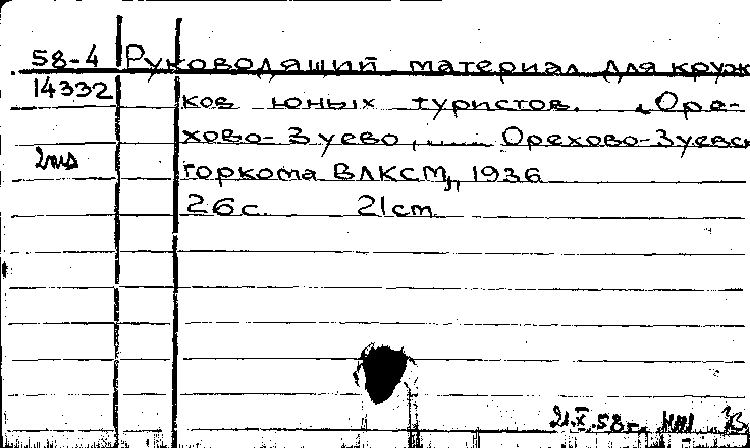 58-4 Руководящий материал для круж
14332 ков юных туристов. Оре-
хово-Зуево, ..... Орехово-Зуевск
горкома ВЛКСМ, 1936
26 с. 21 cm
21.X.58г.